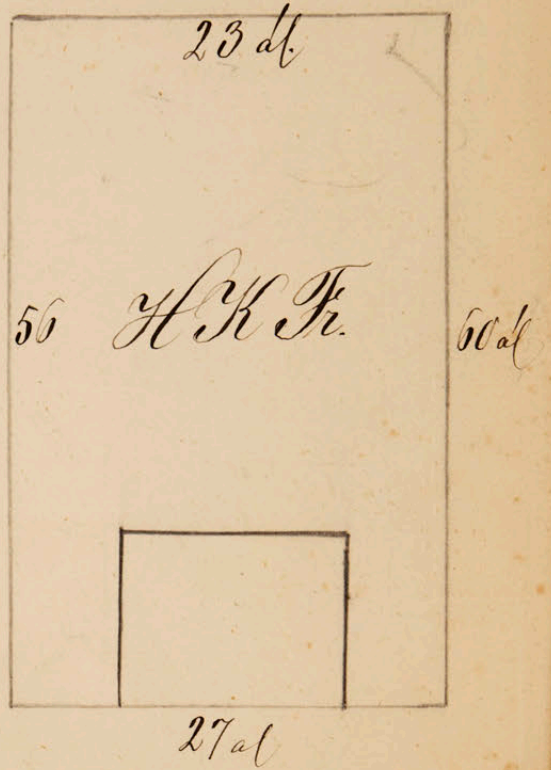 23 ál.
56 H K Fr. 60 ál
27 al